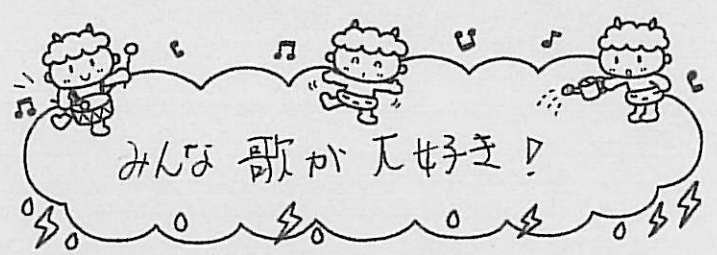 みんな歌が大好き！